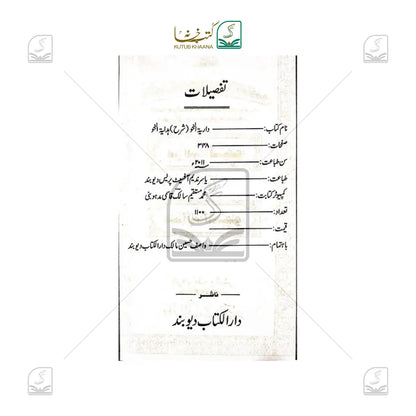 کتب خانہ
KUTUB KHAANA
تفصیلات
نام کتاب: درایۃ النحو (شرح) ہدایۃ النحو
صفحات: ۳۳۸
سن طباعت: ۲۰۱۱ء
طباعت: یاسر ندیم آفسیٹ پریس دیوبند
کمپیوٹر کتابت: محمد مستقیم سالک قاسمی مدہوبنی
تعداد: ۱۱۰۰
قیمت:
باہتمام: واصف حسین مالک دار الکتاب دیوبند
ناشر
دار الکتاب دیوبند